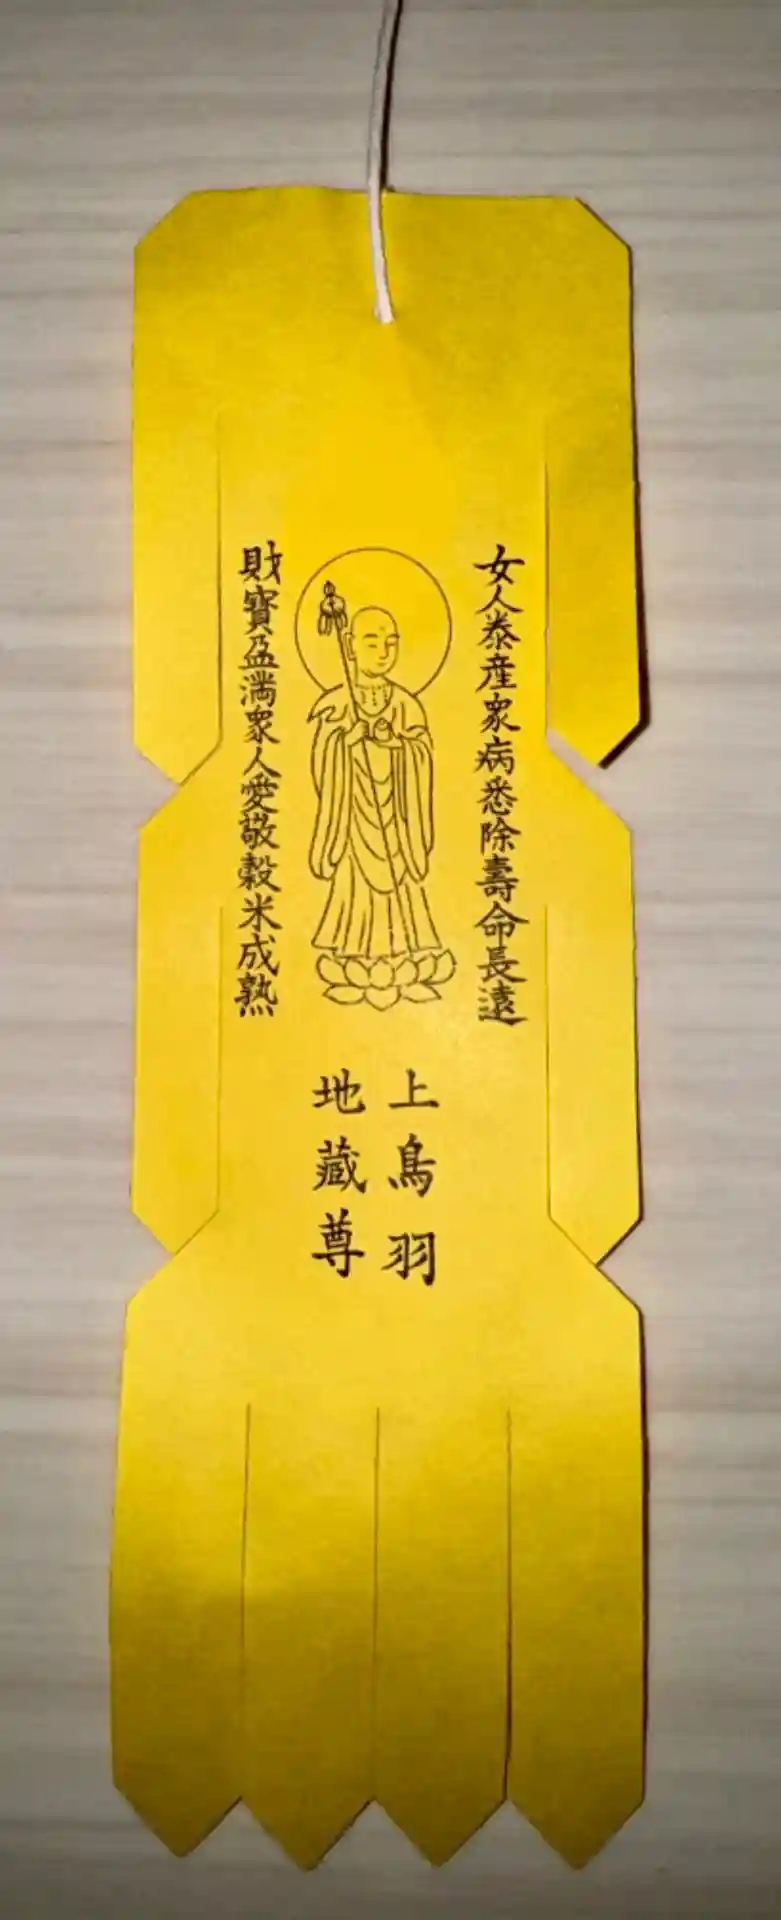 女人泰産衆病悉除壽命長遠
財寶盈満衆人愛敬穀米成熟
上鳥羽
地蔵尊